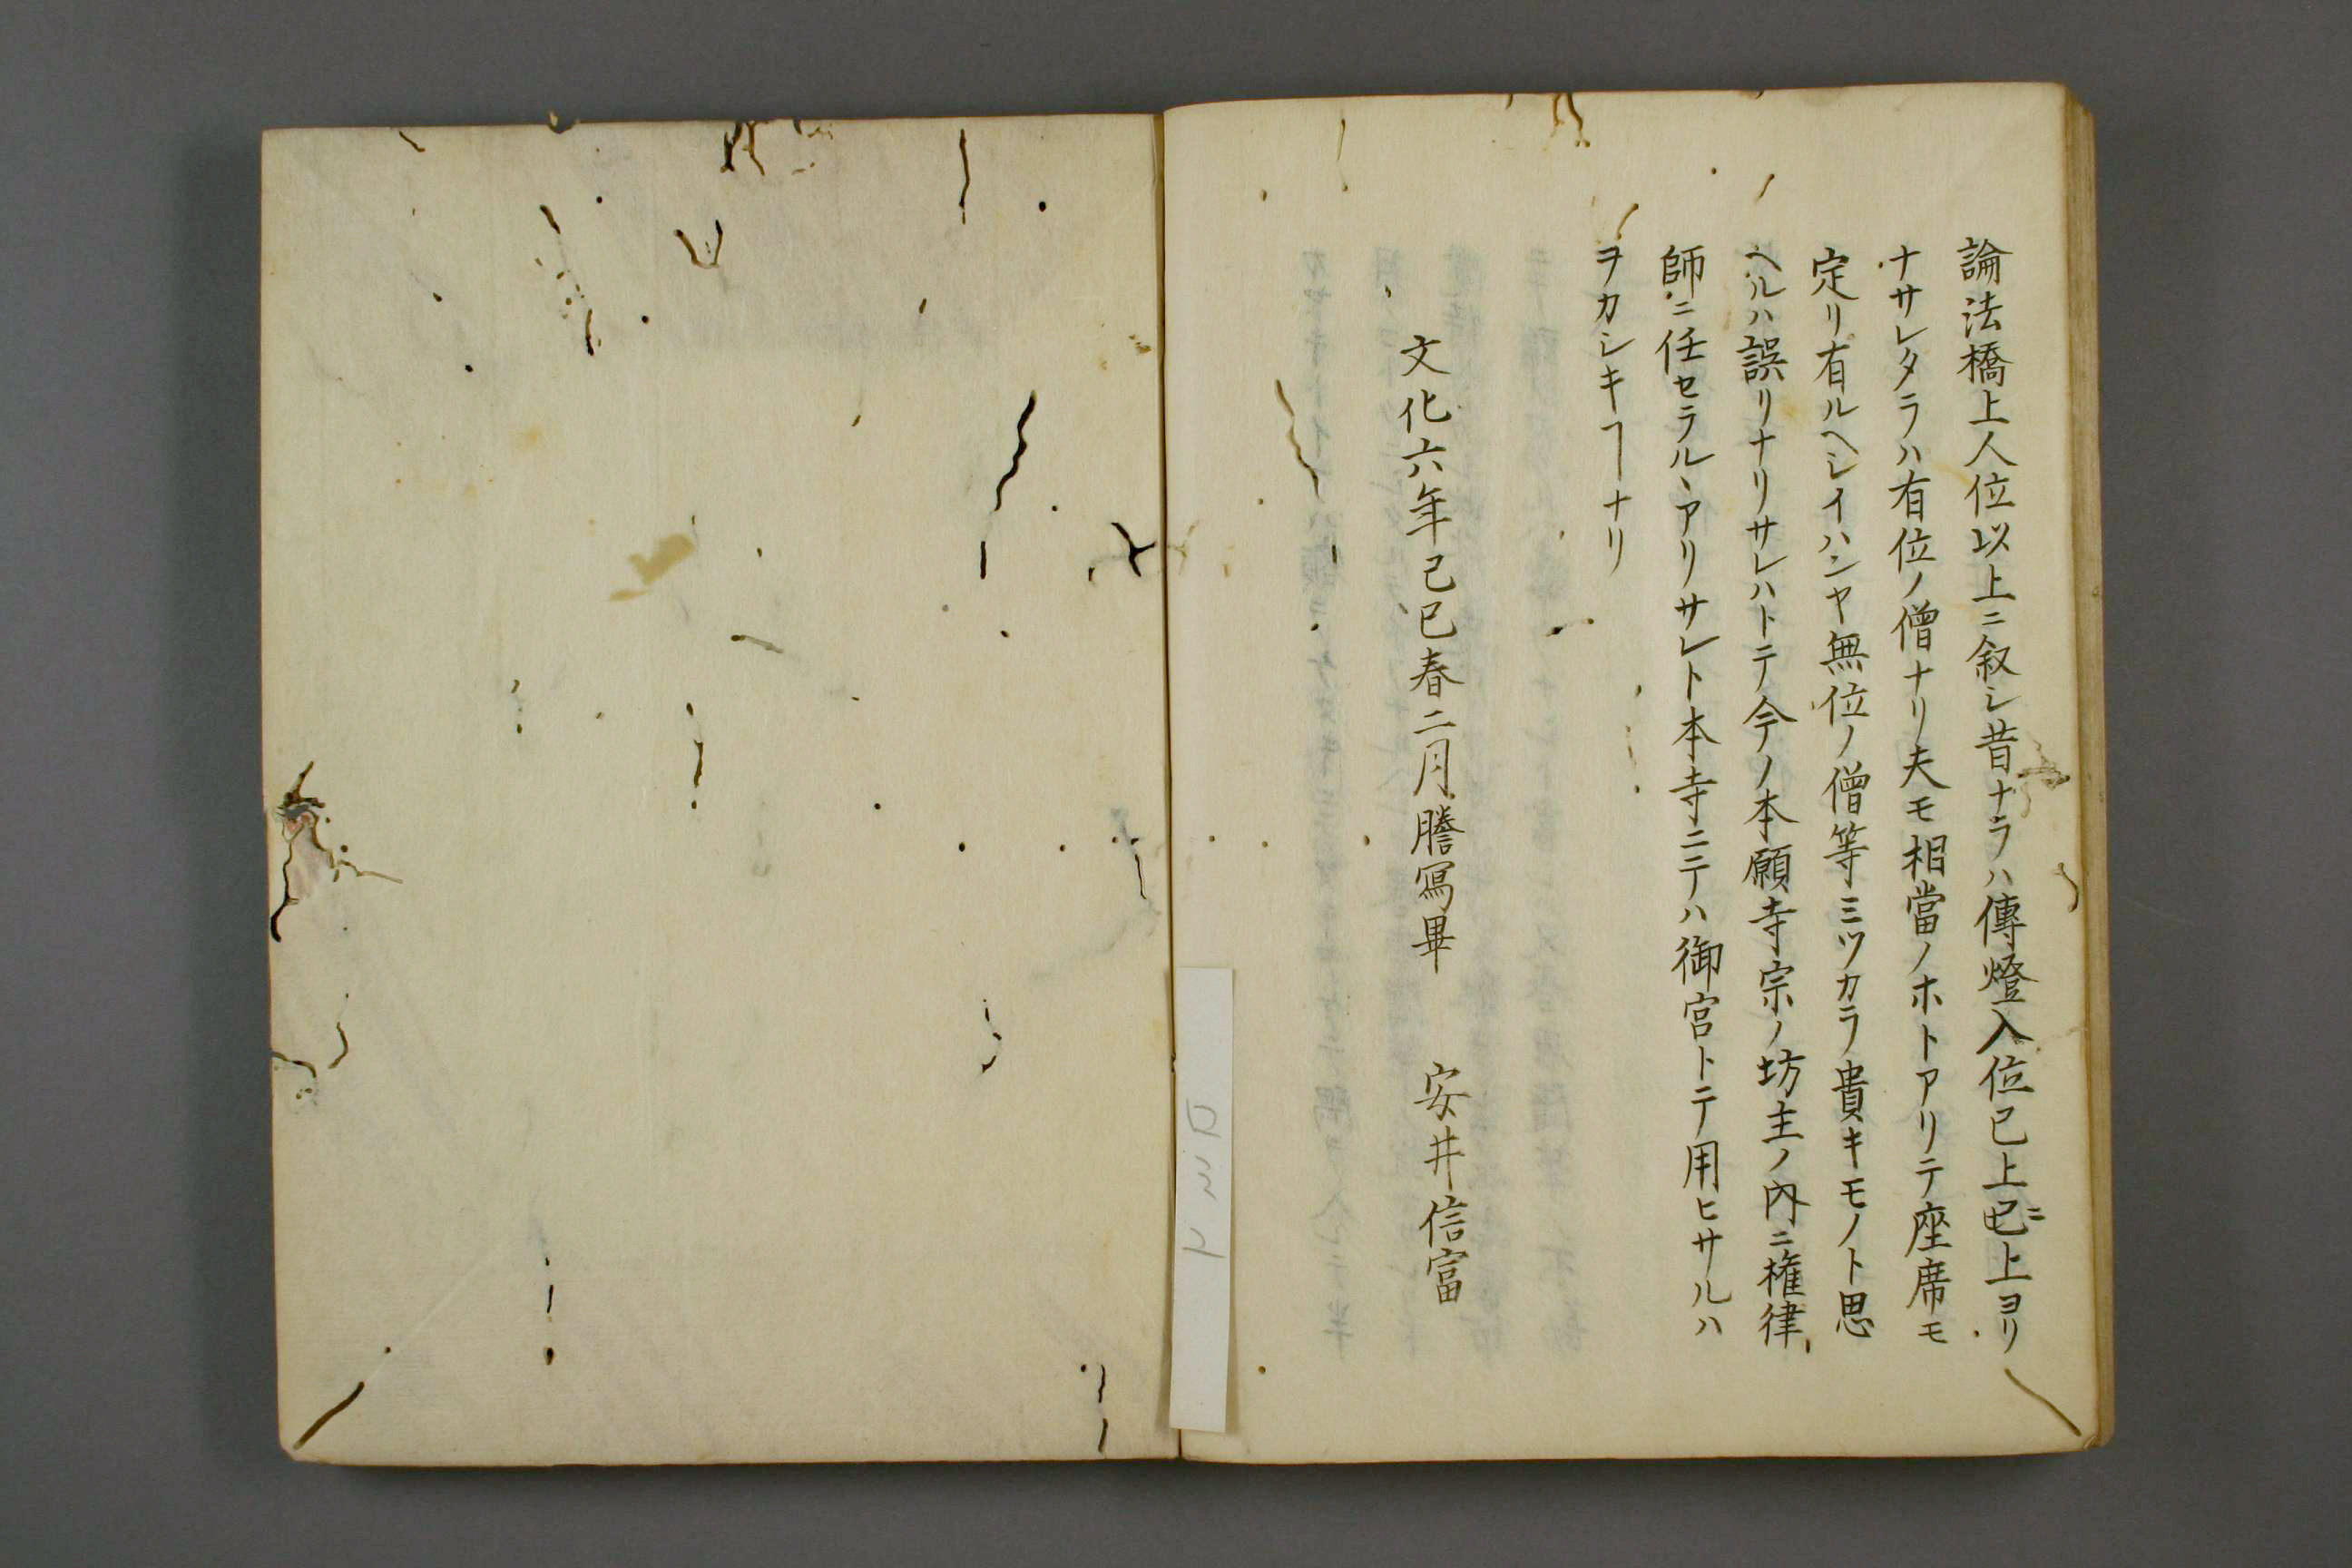 論法橋上人位以上ニ叙シ昔ナラハ傳燈入位已上已ニ上ヨリ
ナサレタラハ有位ノ僧ナリ夫モ相當ノホトアリテ座席モ
定リ有ルヘシイハンヤ無位ノ僧等ミツカラ貴キモノト思
ヘルハ誤リナリサレハトテ今ノ本願寺宗ノ坊主ノ内ニ権律
師ニ任セラルヽアリサレト本寺ニテハ御宮トテ用ヒサルハ
ヲカシキヿナリ
文化六年己巳春二月謄寫畢 安井信富